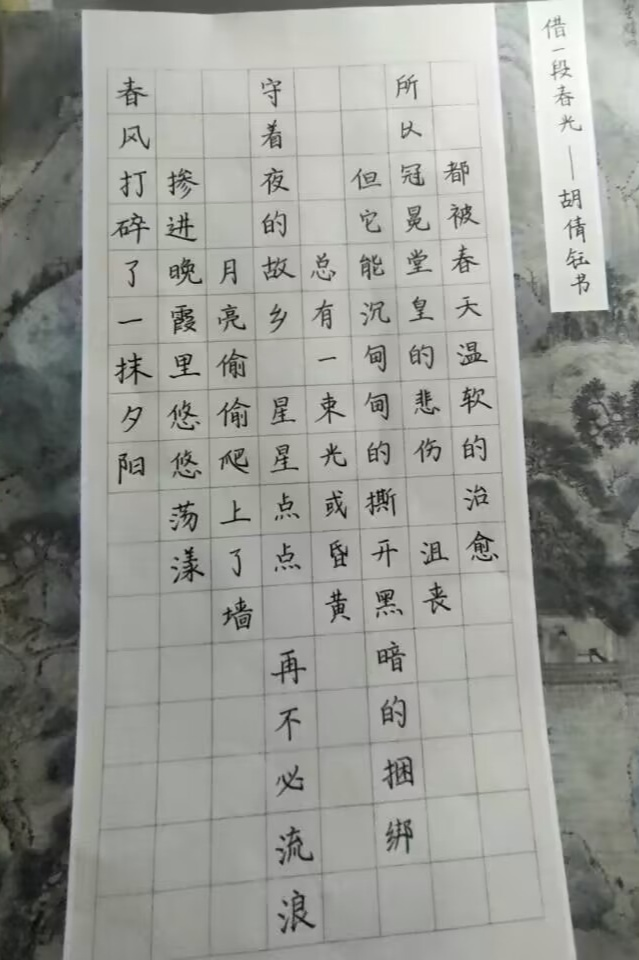 借一段春光 —— 胡倩钰书
春风打碎了一抹夕阳
掺进晚霞里悠悠荡漾
月亮偷偷爬上了墙
守着夜的故乡 星星点点 再不必流浪
总有一束光或昏黄
但它能沉甸甸的撕开黑暗的捆绑
所以冠冕堂皇的悲伤 沮丧
都被春天温软的治愈